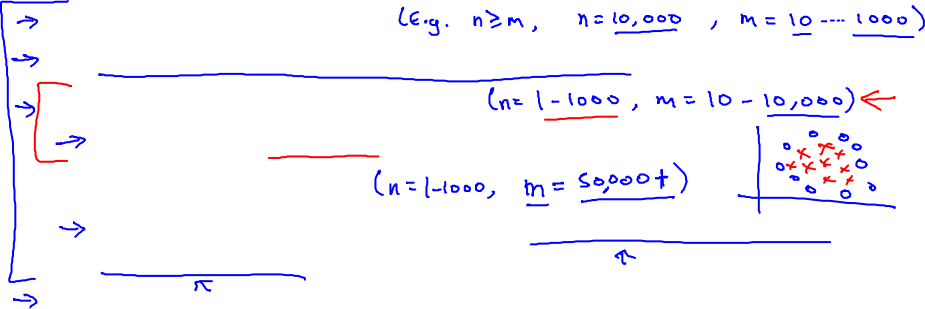 (E.g. n≥m, n=10,000, m=10....1000)
(n=1-1000, m=10-10,000)
(n=1-1000, m=50,000+)